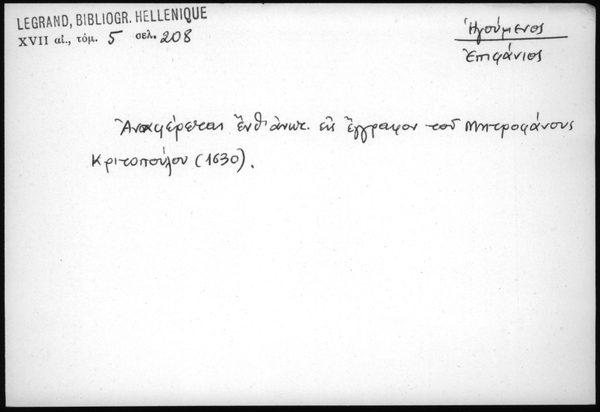 LEGRAND, BIBLIOGR. HELLENIQUE
XVII αἰ., τόμ. 5 σελ. 208
Ἡγούμενος
Ἐπιφάνιος
Ἀναφέρεται εἰς ἔγγραφον τοῦ Μητροφάνους
Κριτοπούλου (1630).